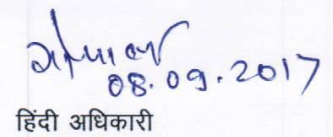 08.09.2017
हिंदी अधिकारी